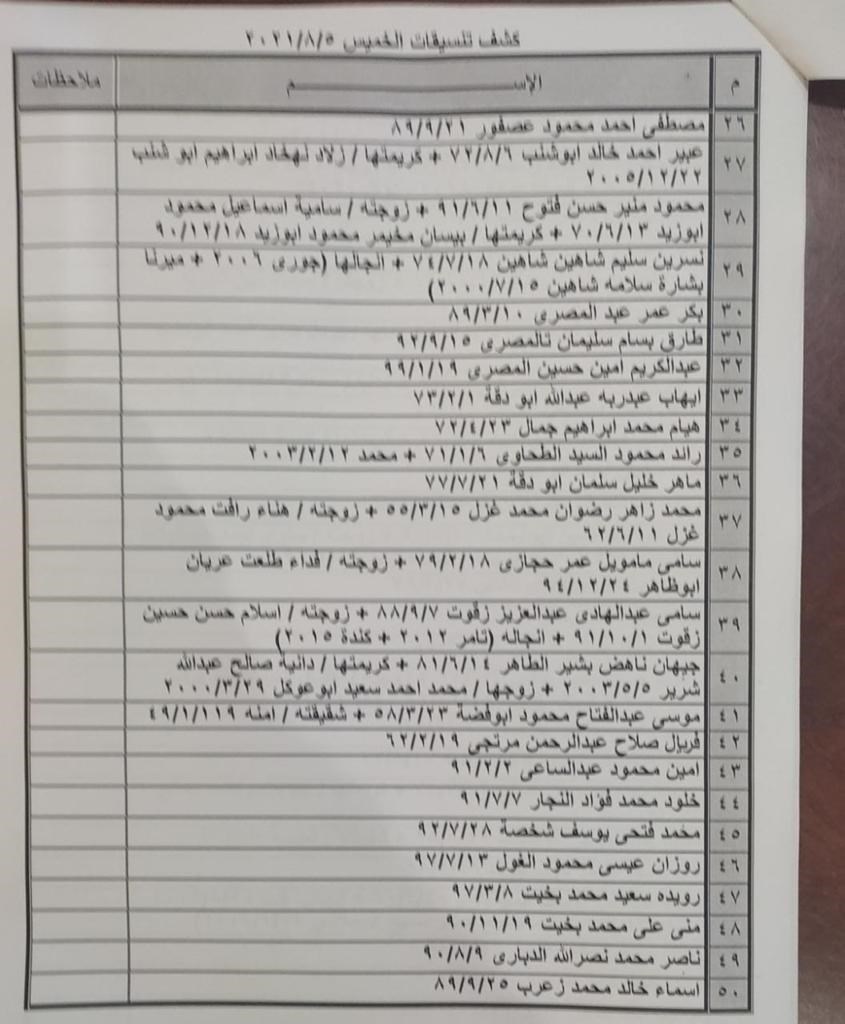 كشف تنسيقات الخميس ٢٠٢١/٨/٥
م الإســــم ملاحظات
٢٦ مصطفى احمد محمود عصفور ٨٩/٩/٢١
٢٧ عبير احمد خالد ابوشنب ٧٢/٨/٦ + كريمتها / زلاد نهخاد ابراهيم ابو شنب
٢٠٠٥/١٢/٢٢
٢٨ محمود منير حسن فتوح ٩١/٦/١١ + زوجته / سامية اسماعيل محمود
ابوزيد ٧٠/٦/١٣ + كريمتها / بيسان مخيمر محمود ابوزيد ٩٠/١٢/١٨
٢٩ نسرين سليم شاهين شاهين ٧٤/٧/١٨ + انجالها (جورى ٢٠٠٦ + ميرنا
بشارة سلامه شاهين ٢٠٠٠/٧/١٥)
٣٠ بكر عمر عبد المصرى ٨٩/٣/١٠
٣١ طارق بسام سليمان تالمصرى ٩٢/٩/١٥
٣٢ عبدالكريم امين حسين المصرى ٩٩/١/١٩
٣٣ ايهاب عبدربه عبدالله ابو دقة ٧٣/٢/١
٣٤ هيام محمد ابراهيم جمال ٧٢/٤/٢٣
٣٥ رائد محمود السيد الطحاوى ٧١/١/٦ + محمد ٢٠٠٣/٢/١٢
٣٦ ماهر خليل سلمان ابو دقة ٧٧/٧/٢١
٣٧ محمد زاهر رضوان محمد غزل ٥٥/٣/١٥ + زوجته / هناء رافت محمود
غزل ٦٢/٦/١١
٣٨ سامى مامويل عمر حجازى ٧٩/٢/١٨ + زوجته / فداء طلعت عريان
ابوظاهر ٩٤/١٢/٢٤
٣٩ سامى عبدالهادى عبدالعزيز زقوت ٨٨/٩/٧ + زوجته / اسلام حسن حسين
زقوت ٩١/١٠/١ + انجاله (تامر ٢٠١٢ + كندة ٢٠١٥)
٤٠ جيهان ناهض بشير الطاهر ٨١/٦/١٤ + كريمتها / دانية صالح عبدالله
شرير ٢٠٠٣/٥/٥ + زوجها / محمد احمد سعيد ابوعوكل ٢٠٠٠/٣/٢٩
٤١ موسى عبدالفتاح محمود ابوفضة ٥٨/٣/٢٣ + شقيقته / امنه ٤٩/١/١١٩
٤٢ فريال صلاح عبدالرحمن مرتجى ٦٢/٢/١٩
٤٣ امين محمود عبدالساعى ٩١/٢/٢
٤٤ خلود محمد فؤاد النجار ٩١/٧/٧
٤٥ محمد فتحى يوسف شخصة ٩٢/٧/٢٨
٤٦ روزان عيسى محمود الغول ٩٧/٧/١٣
٤٧ رويده سعيد محمد بخيت ٩٧/٣/٨
٤٨ منى على محمد بخيت ٩٠/١١/١٩
٤٩ ناصر محمد نصرالله الدبارى ٩٠/٨/٩
٥٠ اسماء خالد محمد زعرب ٨٩/٩/٢٥